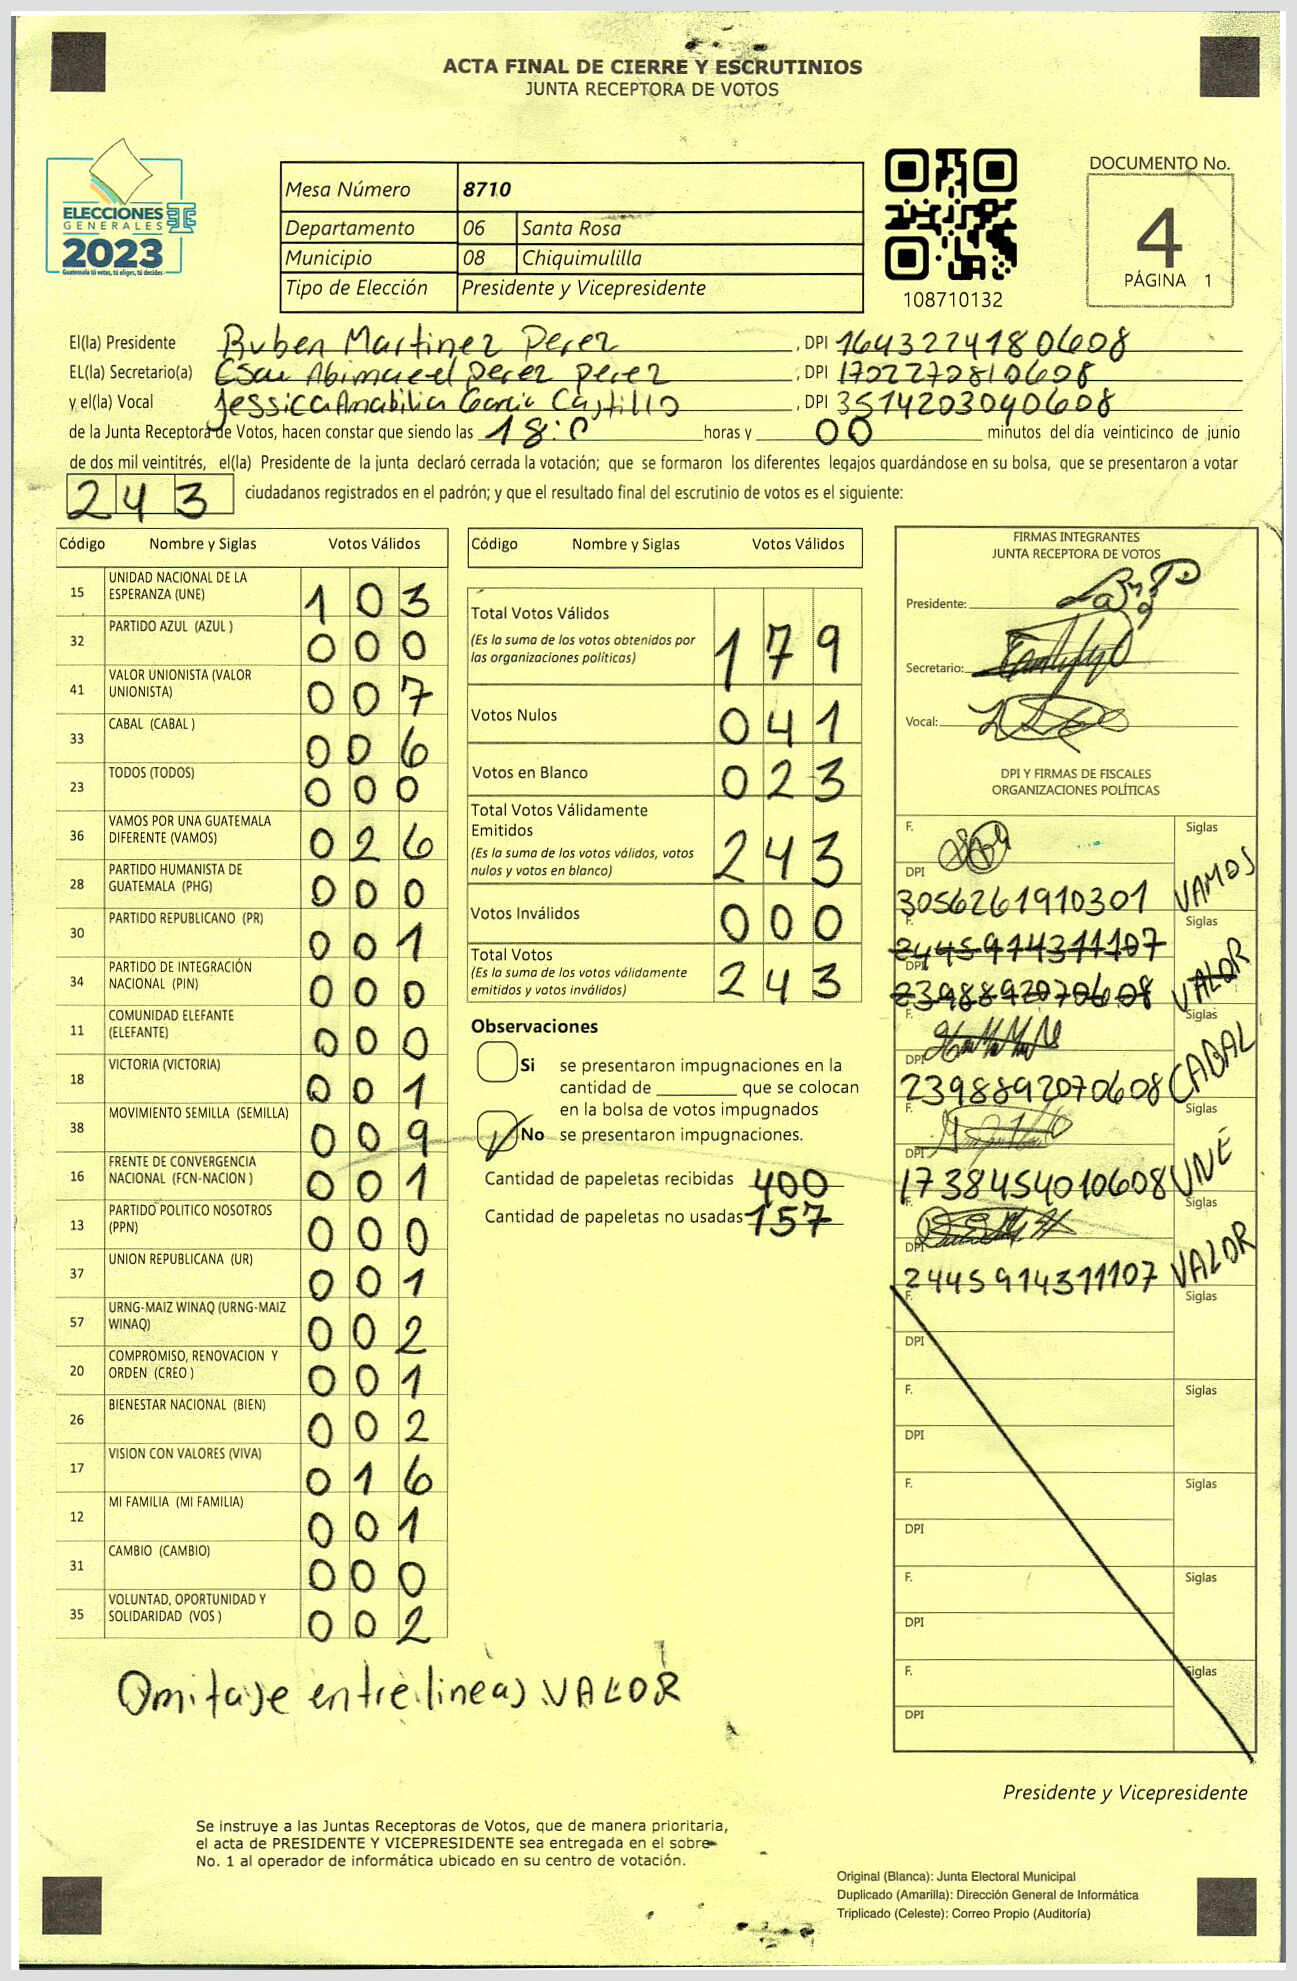 ACTA FINAL DE CIERRE Y ESCRUTINIOS
JUNTA RECEPTORA DE VOTOS
ELECCIONES
GENERALES
2023
Guatemala tú votas, tú eliges, tú decides
Mesa Número 8710
Departamento 06 Santa Rosa
Municipio 08 Chiquimulilla
Tipo de Elección Presidente y Vicepresidente
108710132
DOCUMENTO No.
4
PÁGINA 1
El(la) Presidente Ruben Martinez Perez, DPI 1643224180608
EL(la) Secretario(a) Esau Abimaeel perez perez, DPI 1702270810608
y el(la) Vocal Jessica Anabilia Garcia Castillo, DPI 3514203040608
de la Junta Receptora de Votos, hacen constar que siendo las 18:0 horas y 00 minutos del día veinticinco de junio
de dos mil veintitrés, el(la) Presidente de la junta declaró cerrada la votación; que se formaron los diferentes legajos quardándose en su bolsa, que se presentaron a votar
243 ciudadanos registrados en el padrón; y que el resultado final del escrutinio de votos es el siguiente:
Código Nombre y Siglas Votos Válidos
15 UNIDAD NACIONAL DE LA ESPERANZA (UNE) 103
32 PARTIDO AZUL (AZUL ) 000
41 VALOR UNIONISTA (VALOR UNIONISTA) 007
33 CABAL (CABAL ) 006
23 TODOS (TODOS) 000
36 VAMOS POR UNA GUATEMALA DIFERENTE (VAMOS) 026
28 PARTIDO HUMANISTA DE GUATEMALA (PHG) 000
30 PARTIDO REPUBLICANO (PR) 001
34 PARTIDO DE INTEGRACIÓN NACIONAL (PIN) 000
11 COMUNIDAD ELEFANTE (ELEFANTE) 000
18 VICTORIA (VICTORIA) 001
38 MOVIMIENTO SEMILLA (SEMILLA) 009
16 FRENTE DE CONVERGENCIA NACIONAL (FCN-NACION ) 001
13 PARTIDO POLITICO NOSOTROS (PPN) 000
37 UNION REPUBLICANA (UR) 001
57 URNG-MAIZ WINAQ (URNG-MAIZ WINAQ) 002
20 COMPROMISO, RENOVACION Y ORDEN (CREO ) 001
26 BIENESTAR NACIONAL (BIEN) 002
17 VISION CON VALORES (VIVA) 016
12 MI FAMILIA (MI FAMILIA) 001
31 CAMBIO (CAMBIO) 000
35 VOLUNTAD, OPORTUNIDAD Y SOLIDARIDAD (VOS ) 002
Omitase entrelineas VALOR
Código Nombre y Siglas Votos Válidos
Total Votos Válidos 179
(Es la suma de los votos obtenidos por
las organizaciones políticas)
Votos Nulos 041
Votos en Blanco 023
Total Votos Válidamente
Emitidos 243
(Es la suma de los votos válidos, votos
nulos y votos en blanco)
Votos Inválidos 000
Total Votos 243
(Es la suma de los votos válidamente
emitidos y votos inválidos)
Observaciones
Si se presentaron impugnaciones en la
cantidad de ________ que se colocan
en la bolsa de votos impugnados
No se presentaron impugnaciones.
Cantidad de papeletas recibidas 400
Cantidad de papeletas no usadas 157
FIRMAS INTEGRANTES
JUNTA RECEPTORA DE VOTOS
Presidente:
Secretario:
Vocal:
DPI Y FIRMAS DE FISCALES
ORGANIZACIONES POLÍTICAS
F. Siglas
DPI
3056261910301 VAMOS
F. Siglas
2445914311107
DPI
2398892070608 VALOR
F. Siglas
DPI
2398892070608 CABAL
F. Siglas
DPI
1738454010608 UNE
F. Siglas
DPI
2445914311107 VALOR
F. Siglas
DPI
F. Siglas
DPI
F. Siglas
DPI
F. Siglas
DPI
F. Siglas
DPI
Presidente y Vicepresidente
Se instruye a las Juntas Receptoras de Votos, que de manera prioritaria,
el acta de PRESIDENTE Y VICEPRESIDENTE sea entregada en el sobre
No. 1 al operador de informática ubicado en su centro de votación.
Original (Blanca): Junta Electoral Municipal
Duplicado (Amarilla): Dirección General de Informática
Triplicado (Celeste): Correo Propio (Auditoría)